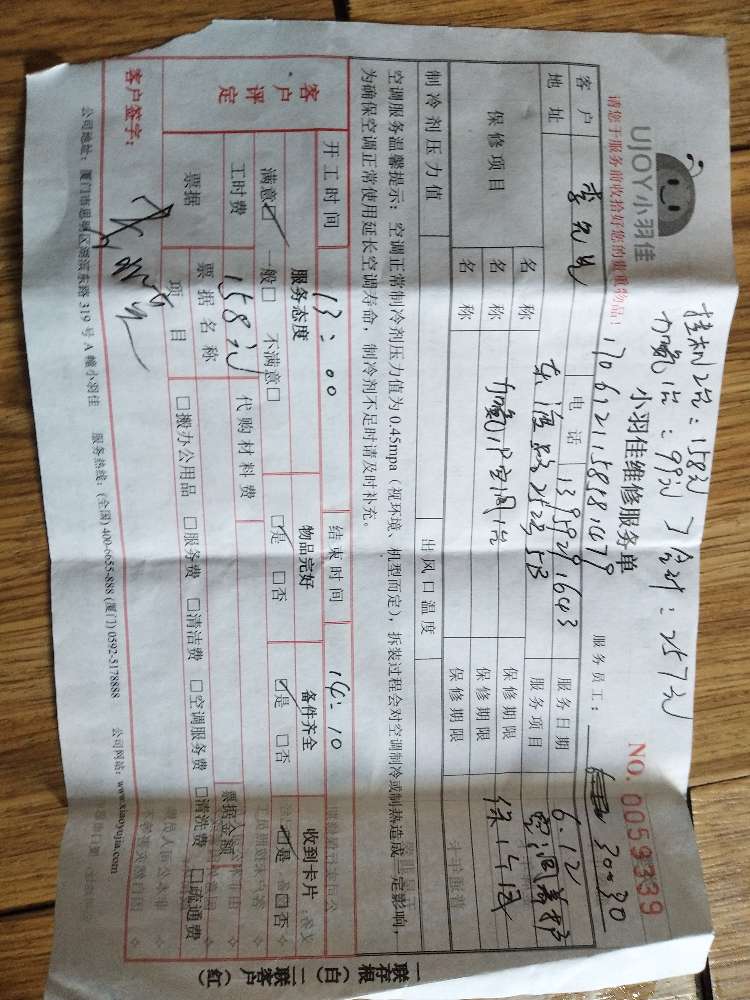 挂机2台：158元
加氨1台：99元 } 合计：257元
UJOY小羽佳
小羽佳维修服务单
NO. 0059339
请您于服务前收拾好您的贵重物品！
1706121158181479
服务员工：
客户 李先生 电话 13959291643 服务日期 6.12
地址 东渡路252号5B 服务项目 空调养护
保修项目 名称 保修期限
名称 加氨1台 保修期限
名称 保修期限
制冷剂压力值 出风口温度
空调服务温馨提示：空调正常制冷剂压力值为 0.45mpa（视环境、机型而定），拆装过程会对空调制冷或制热造成一定影响，
为确保空调正常使用延长空调寿命，制冷剂不足时请及时补充。
客户评定
开工时间 13:00 结束时间 14:10
服务态度 物品完好 备件齐全 收到卡片
满意☑ 一般□ 不满意□ ☑是 □否 ☑是 □否 ☑是 □否
工时费 158元 代购材料费
票据 票据名称 票据金额
项目 □搬办公用品 □服务费 □清洁费 □空调服务费 □清洗费 □疏通费
客户签字：
公司地址：厦门市思明区湖滨东路 319 号 A 幢小羽佳 服务热线：(全国) 400-6655-888 (厦门) 0592-5178888 公司网站：www.xiaoyujia.com
一联存根（白）二联客户（红）